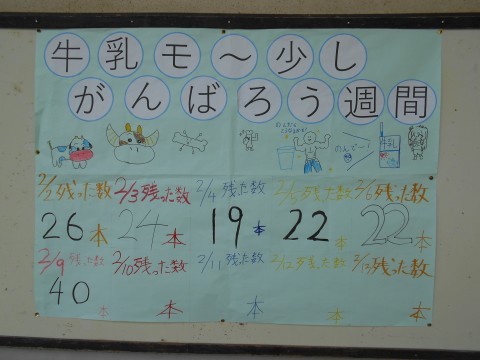 牛乳モ～少し
がんばろう週間
のんだらこうなるかも!
のんでー!
牛乳
2/2残った数 2/3残った数 2/4残った数 2/5残った数 2/6残った数
26本 24本 19本 22本 22本
2/9残った数 2/10残った数 2/11残った数 2/12残った数 2/13残った数
40本 本 本 本 本